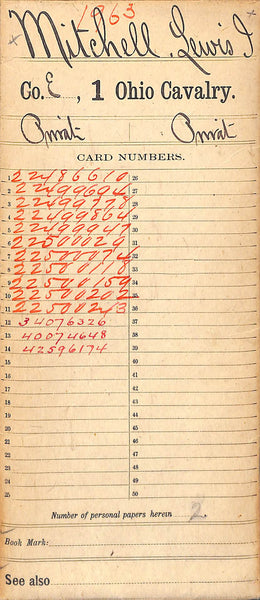 1963
Mitchell, Lewis I
Co. E, 1 Ohio Cavalry.
Privat Privat
CARD NUMBERS.
1 22486610 26
2 22499694 27
3 22499778 28
4 22499864 29
5 22499947 30
6 22500029 31
7 22500074 32
8 22500118 33
9 22500159 34
10 22500202 35
11 22500243 36
12 34076326 37
13 40074648 38
14 42596174 39
15 40
16 41
17 42
18 43
19 44
20 45
21 46
22 47
23 48
24 49
25 50
Number of personal papers herein 2
Book Mark:
See also